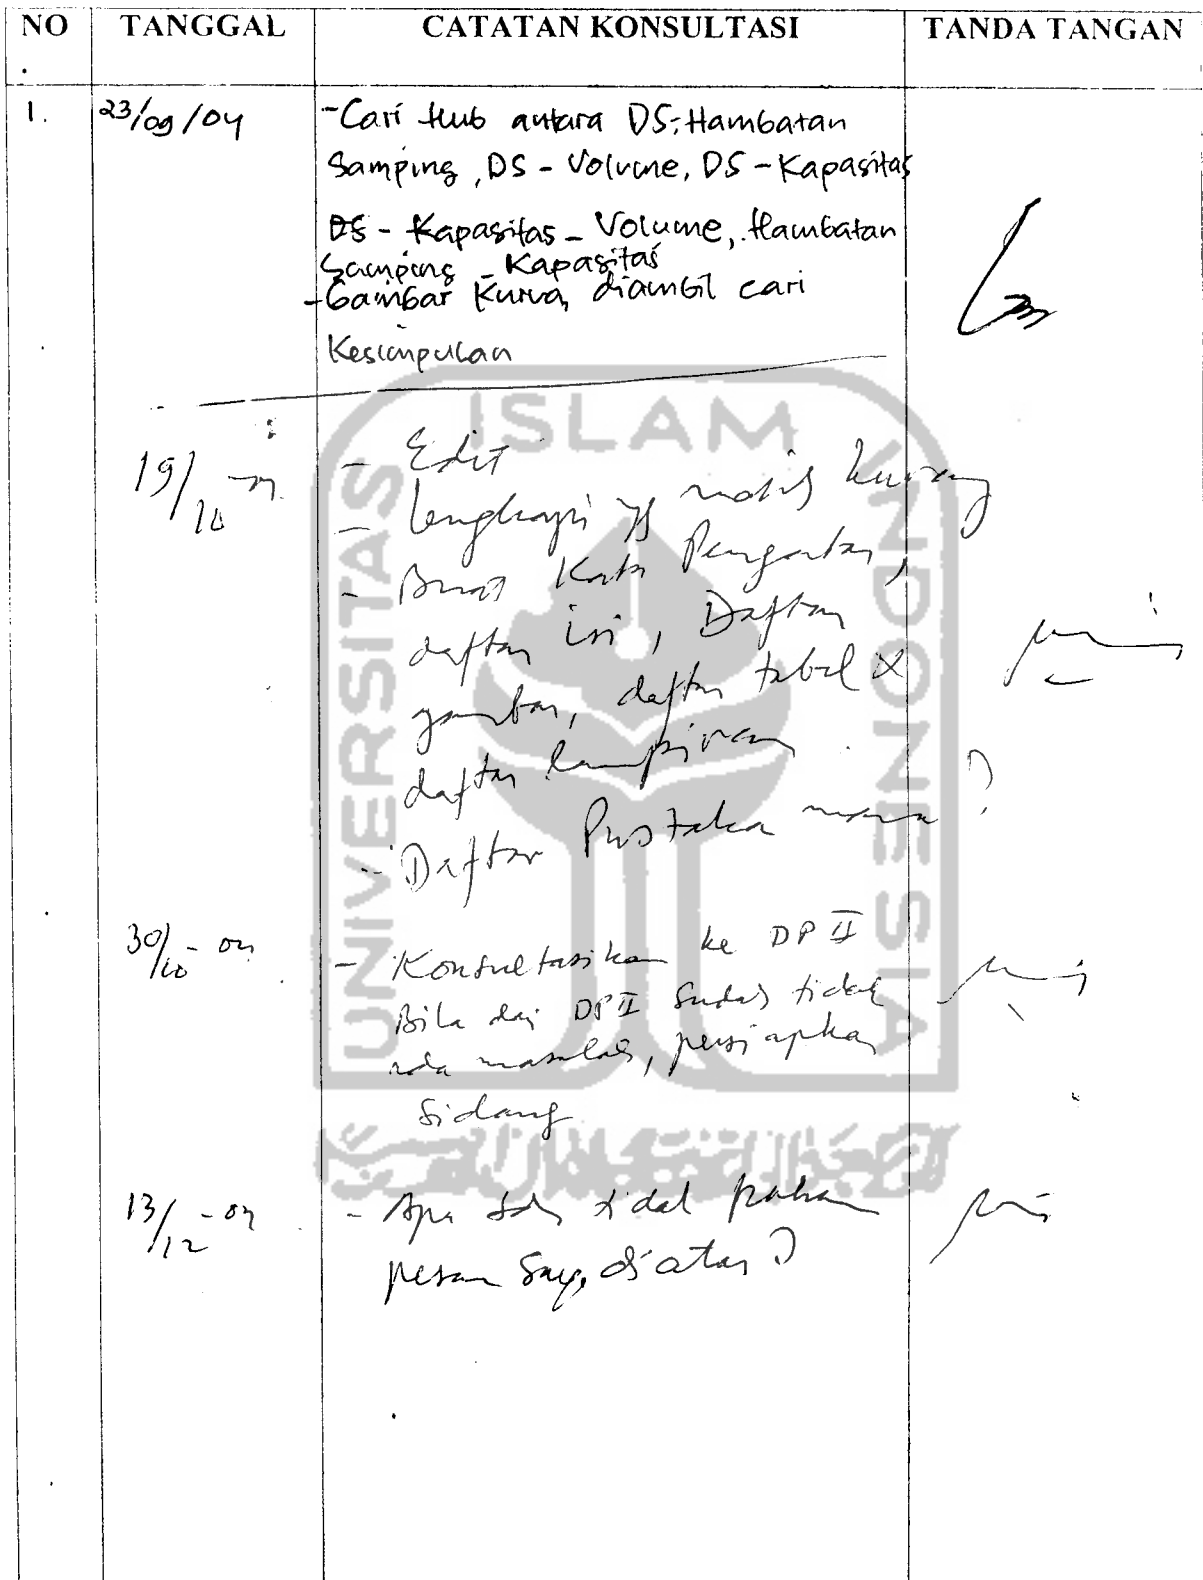 NO. TANGGAL CATATAN KONSULTASI TANDA TANGAN
1. 23/09/04 -Cari Hub antara DS-Hambatan
Samping, DS - Volume, DS - Kapasitas
DS - Kapasitas - Volume, Hambatan
Samping - Kapasitas
-Gambar Kurva, diambil cari
Kesimpulan
19/10-04 - Edit
- lengkapi yg masih kurang
- Buat Kata Pengantar,
daftar isi, Daftar
gambar, daftar tabel &
daftar lampiran
- Daftar Pustaka mana?
30/10 - 04 - Konsultasikan ke DP II
Bila dari DP II sudah tidak
ada masalah, persiapkan
Sidang
13/12 - 04 - Apa sdr tidak paham
pesan saya di atas?
UNIVERSITAS
ISLAM
INDONESIA